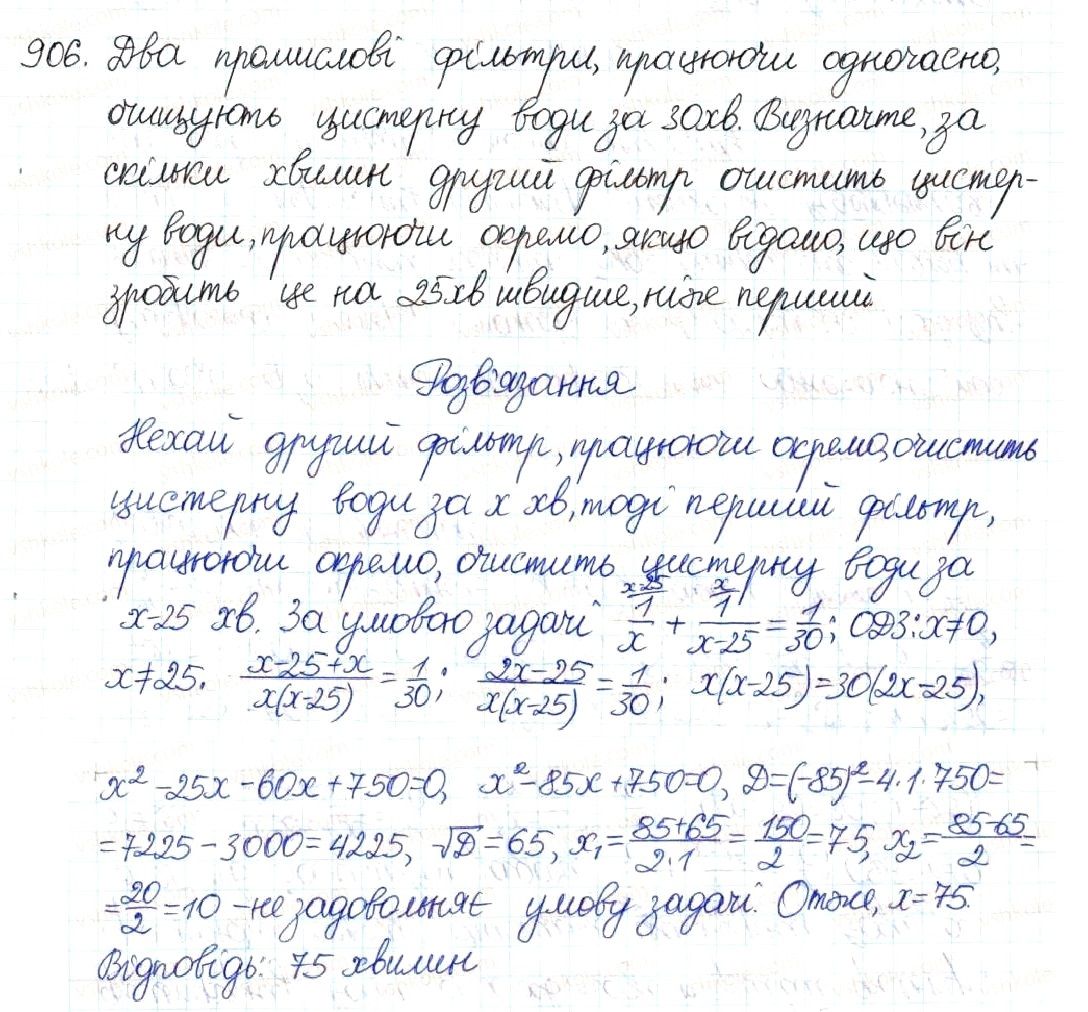 906. Два промислові фільтри, працюючи одночасно,
очищують цистерну води за 30хв. Визначте, за
скільки хвилин другий фільтр очистить цистер-
ну води, працюючи окремо, якщо відомо, що він
зробить це на 25хв швидше, ніж перший.
Розв'язання
Нехай другий фільтр, працюючи окремо, очистить
цистерну води за x хв, тоді перший фільтр,
працюючи окремо, очистить цистерну води за
x-25 хв. За умовою задачі x-25/1/x + x/1/x-25 = 1/30; ОДЗ: x≠0,
x≠25. x-25+x/x(x-25) = 1/30; 2x-25/x(x-25) = 1/30; x(x-25)=30(2x-25),
x²-25x-60x+750=0, x²-85x+750=0, D=(-85)²-4·1·750=
=7225-3000=4225, √D=65, x₁=85+65/2·1=150/2=75, x₂=85-65/2=
=20/2=10 -не задовольняє умову задачі. Отже, x=75.
Відповідь: 75 хвилин